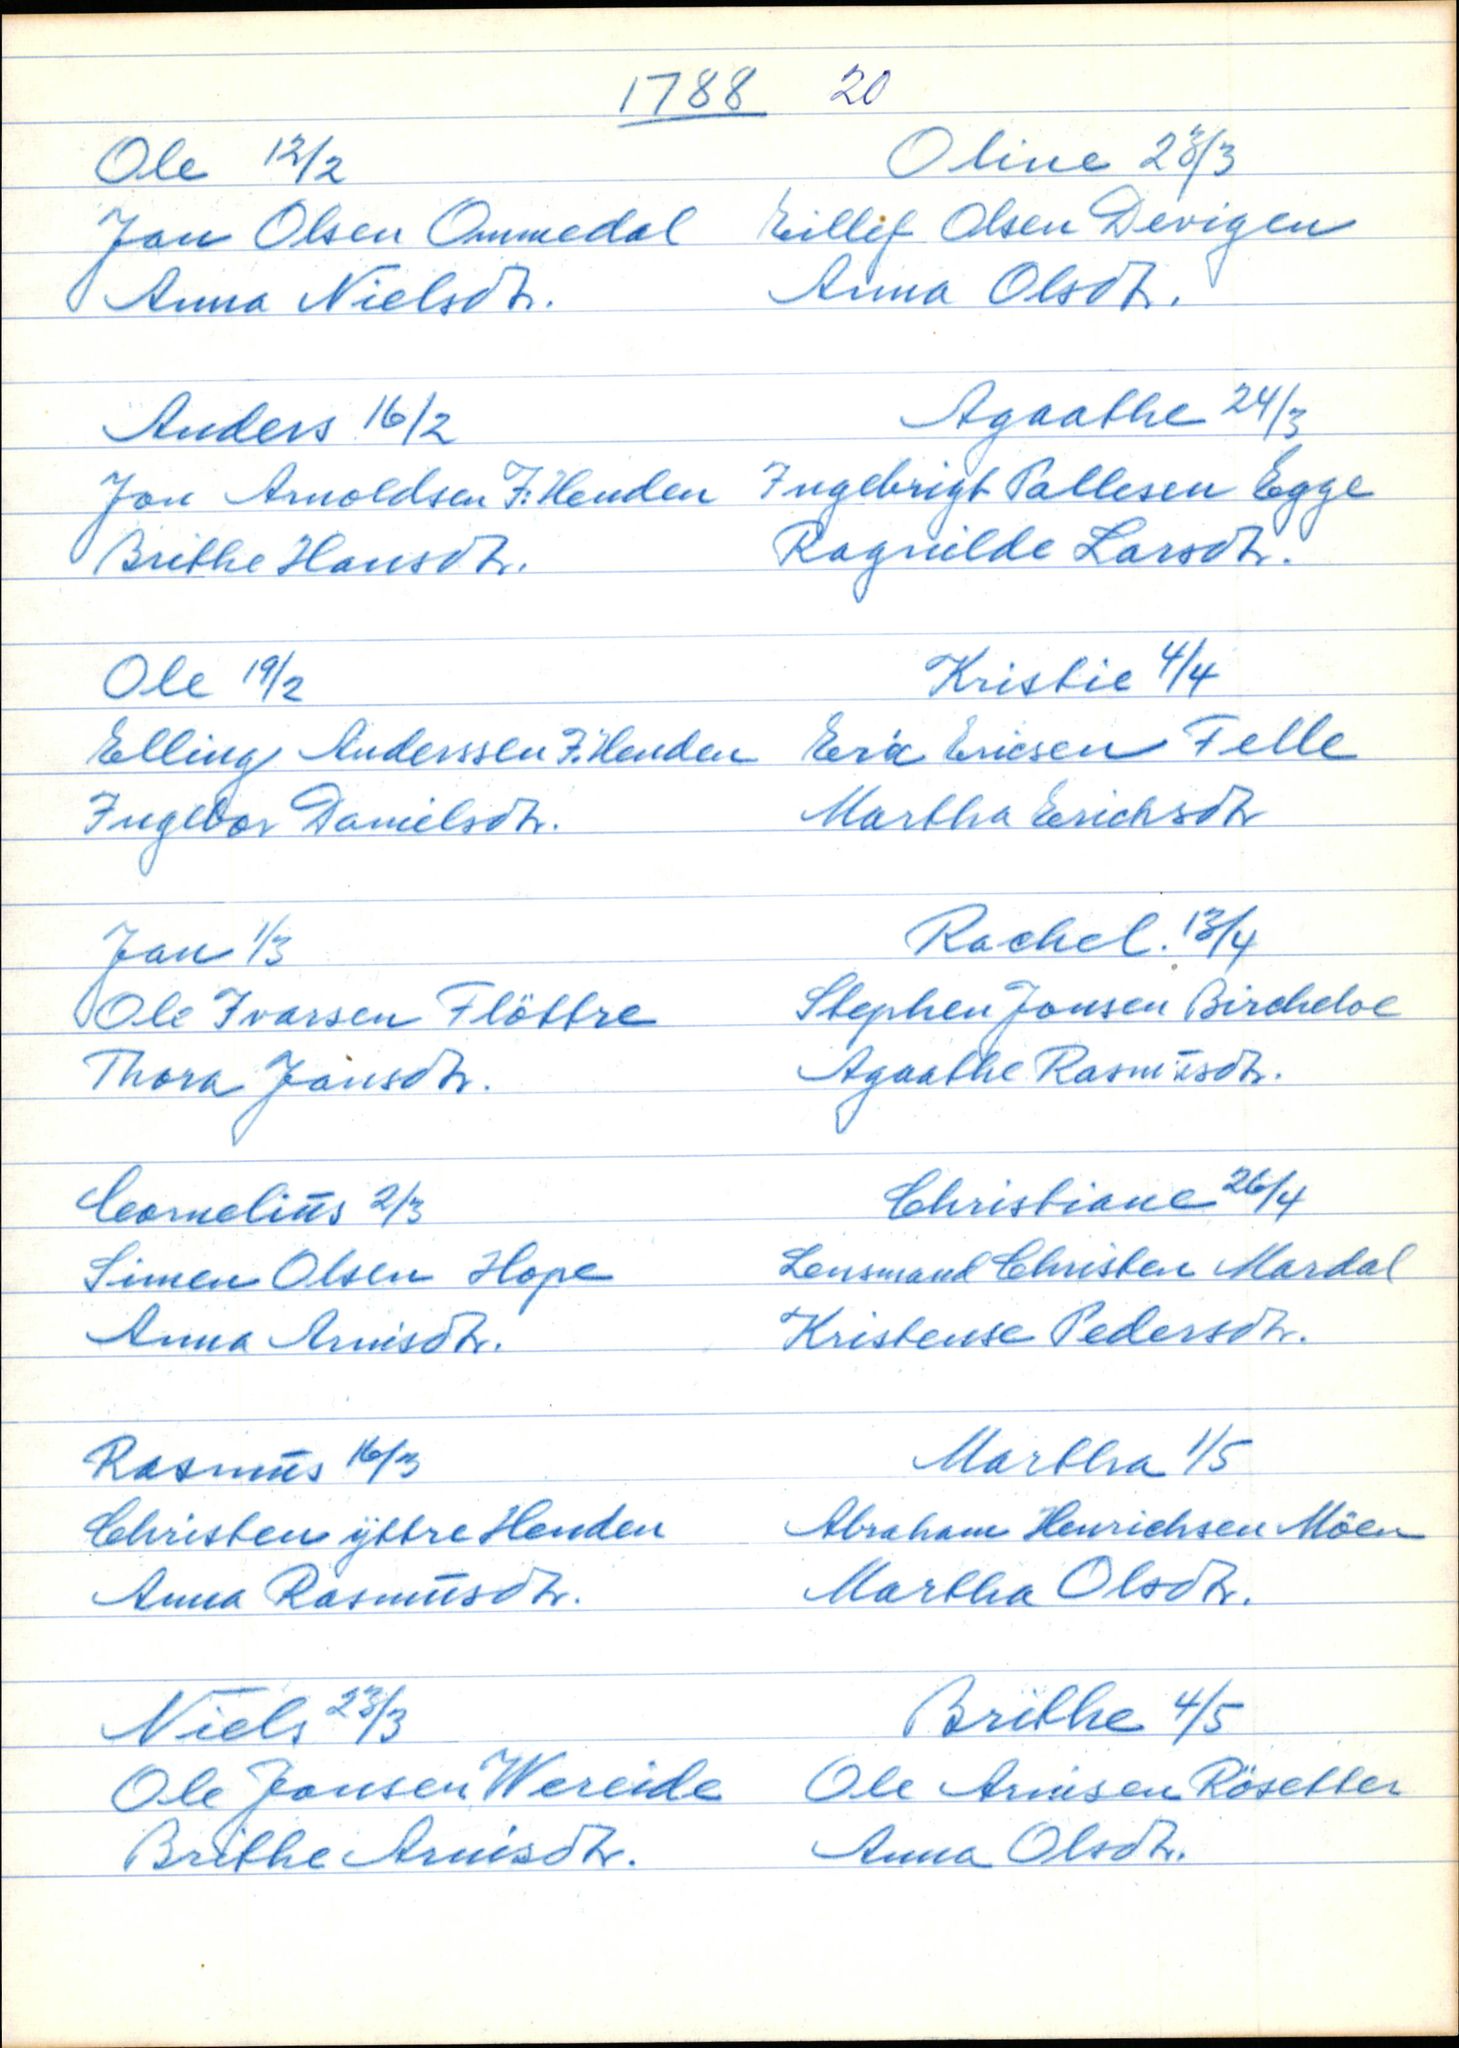 1788 20
Ole 12/2
Jan Olsen Ommedal
Anna Nielsdtr.
Anders 16/2
Jon Arnoldsen F: Henden
Brithe Hansdtr.
Ole 19/2
Elling Anderssen F. Henden
Ingebor Danielsdtr.
Jan 1/3
Ole Ivarsen Flöttre
Thora Jansdtr.
Cornelius 2/3
Simen Olsen Hope
Anna Arnisdtr.
Rasmus 16/3
Christen ÿttre Henden
Anna Rasmusdtr.
Niels 23/3
Ole Jonsen Wereide
Brithe Arnisdtr.
Oline 23/3
Eillif Olsen Devigen
Anna Olsdtr.
Agaathe 24/3
Ingebrigt Pallesen Egge
Ragnilde Larsdtr.
Kristie 4/4
Eric Ericsen Felle
Martha Erichsdtr
Rachel. 13/4
Stephen Jonsen Bircheloe
Agaathe Rasmusdtr.
Christiane 26/4
Lensmand Christen Mardal
Kristense Pedersdtr.
Martha 1/5
Abraham Henrichsen Möen
Martha Olsdtr.
Brithe 4/5
Ole Arnisen Rösetter
Anna Olsdtr.